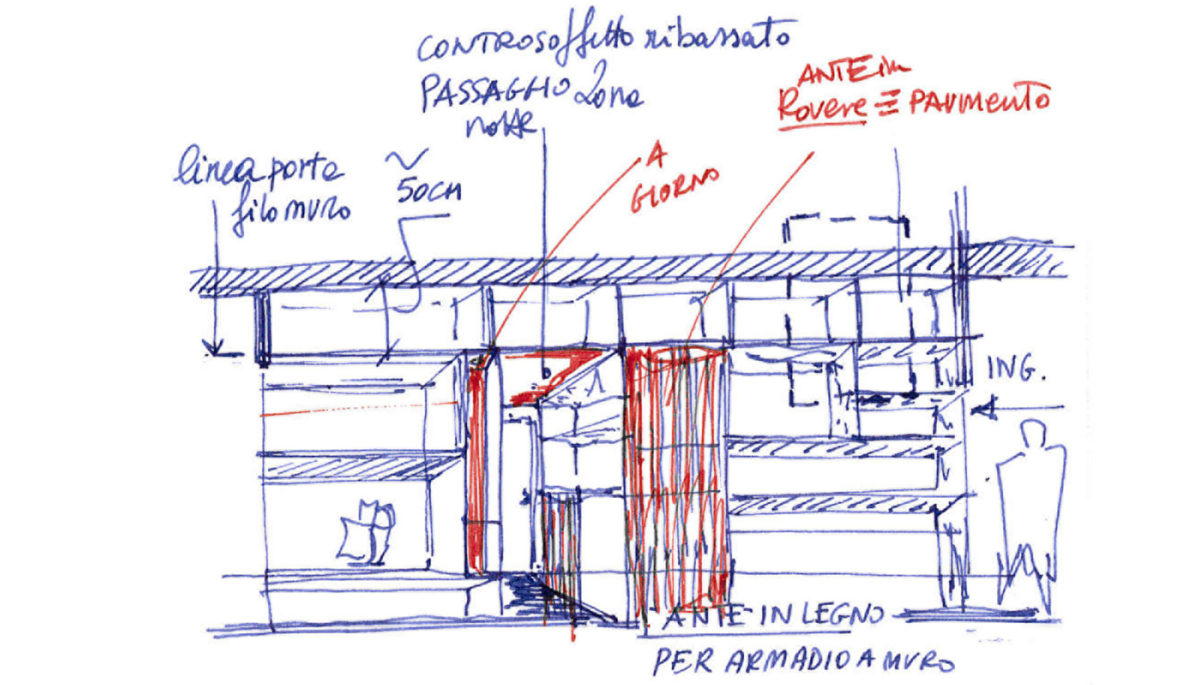 CONTROSOffetto ribassato
PASSAGGIO Zona
notte
ANTE in
Rovere ≡ PAVIMENTO
linea porte
filo muro
~
50CM
A
GIORNO
ING.
ANTE IN LEGNO
PER ARMADIO A MURO